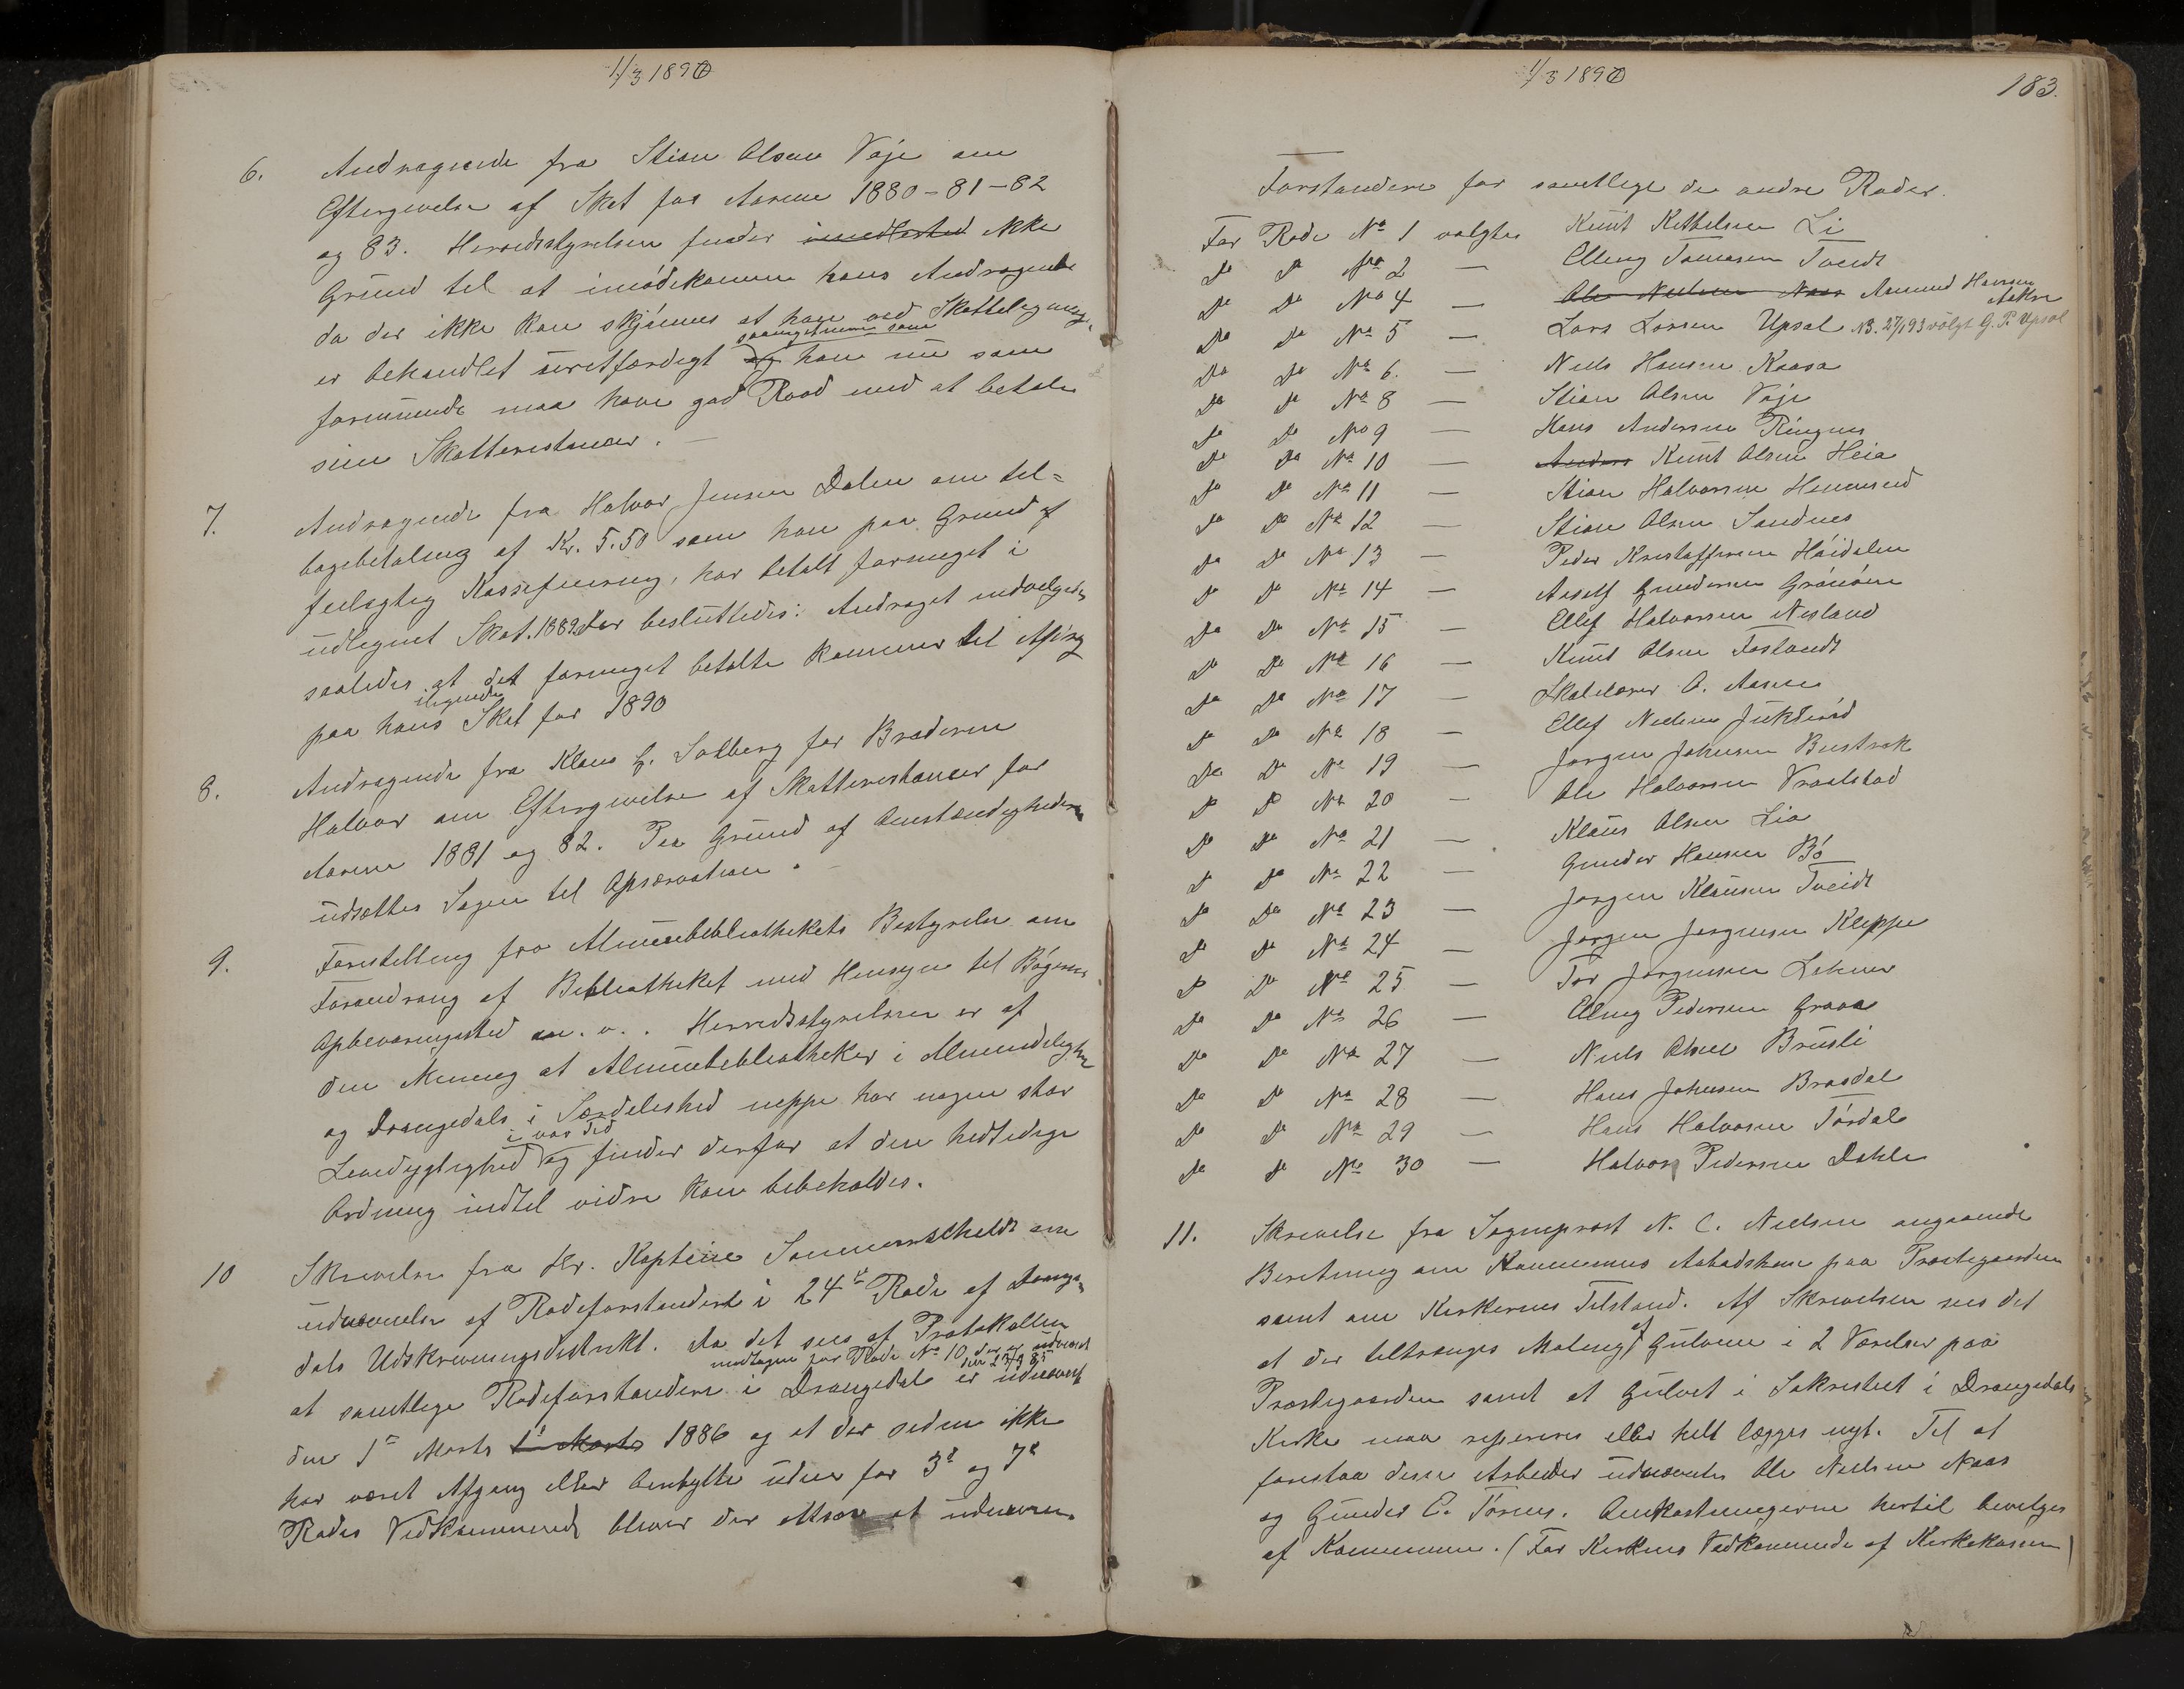 1/3 1890
6. Andragende fra Stian Olsen Vøje om
Eftergivelse af Skat for Aarene 1880-81-82
og 83. Herredsstyrelsen finder imidlertid ikke
Grund til at imødekomme hans Andragende
da der ikke kan skjønnes at han ved Skatteligning
er behandlet uretfærdigt saavel som han nu som
formuende maa have god Raad med at betale
sine Skatterestancer. —
7. Andragende fra Halvor Jensen Dalen om til=
bagebetaling af Kr. 5.50 som han paa Grund af
feilagtig Kassefuering, har betalt formeget i
udlignet Skat. 1889. Der besluttedes: Andraget indvilges
saaledes at det formeget betalte kommer til Afdrag
paa hans Skat for 1890
8. Andragende fra Klaus H. Solberg for Broderen
Halvor om Eftergivelse af Skatterestancer for
Aarene 1881 og 82. Paa Grund af Omstændigheder
udsættes Sagen til Observation. —
9. Forestilling fra Almuebibliothekets Bestyrelse om
Forandring af Bibliotheket med Hensyn til Bøgernes
Opbevaringssted m. v. . Herredsstyrelsen er af
den Mening at Almuebibliotheker i Almindelighed
og Drangedals i Særdeleshed neppe har nogen stor
Levedygtighed i vor Tid og finder derfor at den hidtidige
Ordning indtil vidre kan bibeholdes.
10 Skrivelse fra Hr. Kaptein Sommerscheldt om
udnævnelse af Rodeforstandere i 24de Rode af Drange-
dals Udskrivningsdistrikt. Da det sees af Protokollen
at samtlige Rodeforstandere i Drangedal undtagen for Rode No 10, der er udnævnt den 27/9 85 er udnævnt
den 1ste Marts 1ste Marts 1886 og at der siden ikke
har været Afgang eller Ombytte uden for 3de og 7de
Rodes Vedkommende bliver der altsaa at udnævne
1/3 1890
183.
Forstandere for samtlige de andre Roder.
For Rode No 1 valgtes Knut Kittelsen Li
Do Do No 2 — Elling Tomasen Tveidt
Do Do No 4 — Ole Nielsen Naas Aamund Hansen Aakre
Do Do No 5 — Lars Larsen Upsal NB. 27/1 93 valgt G. P. Upsal
Do Do No 6. — Niels Hansen Kaasa
Do Do No 8 — Stian Olsen Vøje
Do Do No 9 — Hans Andersen Ringnes
Do Do No 10 — Anders Knut Olsen Heia
Do Do No 11 — Stian Halvorsen Henneseid
Do Do No 12 — Stian Olsen Sandnes
Do Do No 13 — Peder Kristoffersen Høidalen
Do Do No 14 — Aasolf Gundersen Grønåsen
Do Do No 15 — Ellef Halvorsen Nesland
Do Do No 16 — Knut Olsen Foslandt
Do Do No 17 — Skolelærer O. Aasen
Do Do No 18 — Ellef Nielsen Jukseråd
Do Do No 19 — Jørgen Johnsen Bustrak
Do Do No 20 — Ole Halvorsen Vraalstad
Do Do No 21 — Klaus Olsen Lia
Do Do No 22 — Gunder Hansen Bø
Do Do No 23 — Jørgen Klausen Tveidt
Do Do No 24 — Jørgen Jørgensen Kleppe
Do Do No 25 — Tor Jørgensen
Do Do No 26 — Elling Pedersen Graaa
Do Do No 27 — Niels Olsen Brusli
Do Do No 28 — Hans Johnsen Brødal
Do Do No 29 — Hans Halvorsen Tørdal
Do Do No 30 — Halvor Pedersen Dahle
11. Skrivelse fra Sogneprest N. C. Nielsen angaaende
Beretning om Kommunens Aabodshuse paa Præstegaarden
samt om Kirkernes Tilstand. Af Skrivelsen sees det
at der tiltrænges Maling af Gulvene i 2 Værelser paa
Præstegaarden samt at Gulvet i Sakristiet i Drangedals
Kirke maa repareres eller helt lægges nyt. Til at
forestaa disse Arbeider udnævntes Ole Nielsen Naas
og Gunder E. Tørnes. Omkostningerne hertil bevilges
af Kommunen. (For Kirkens Vedkommende af Kirkekassen)